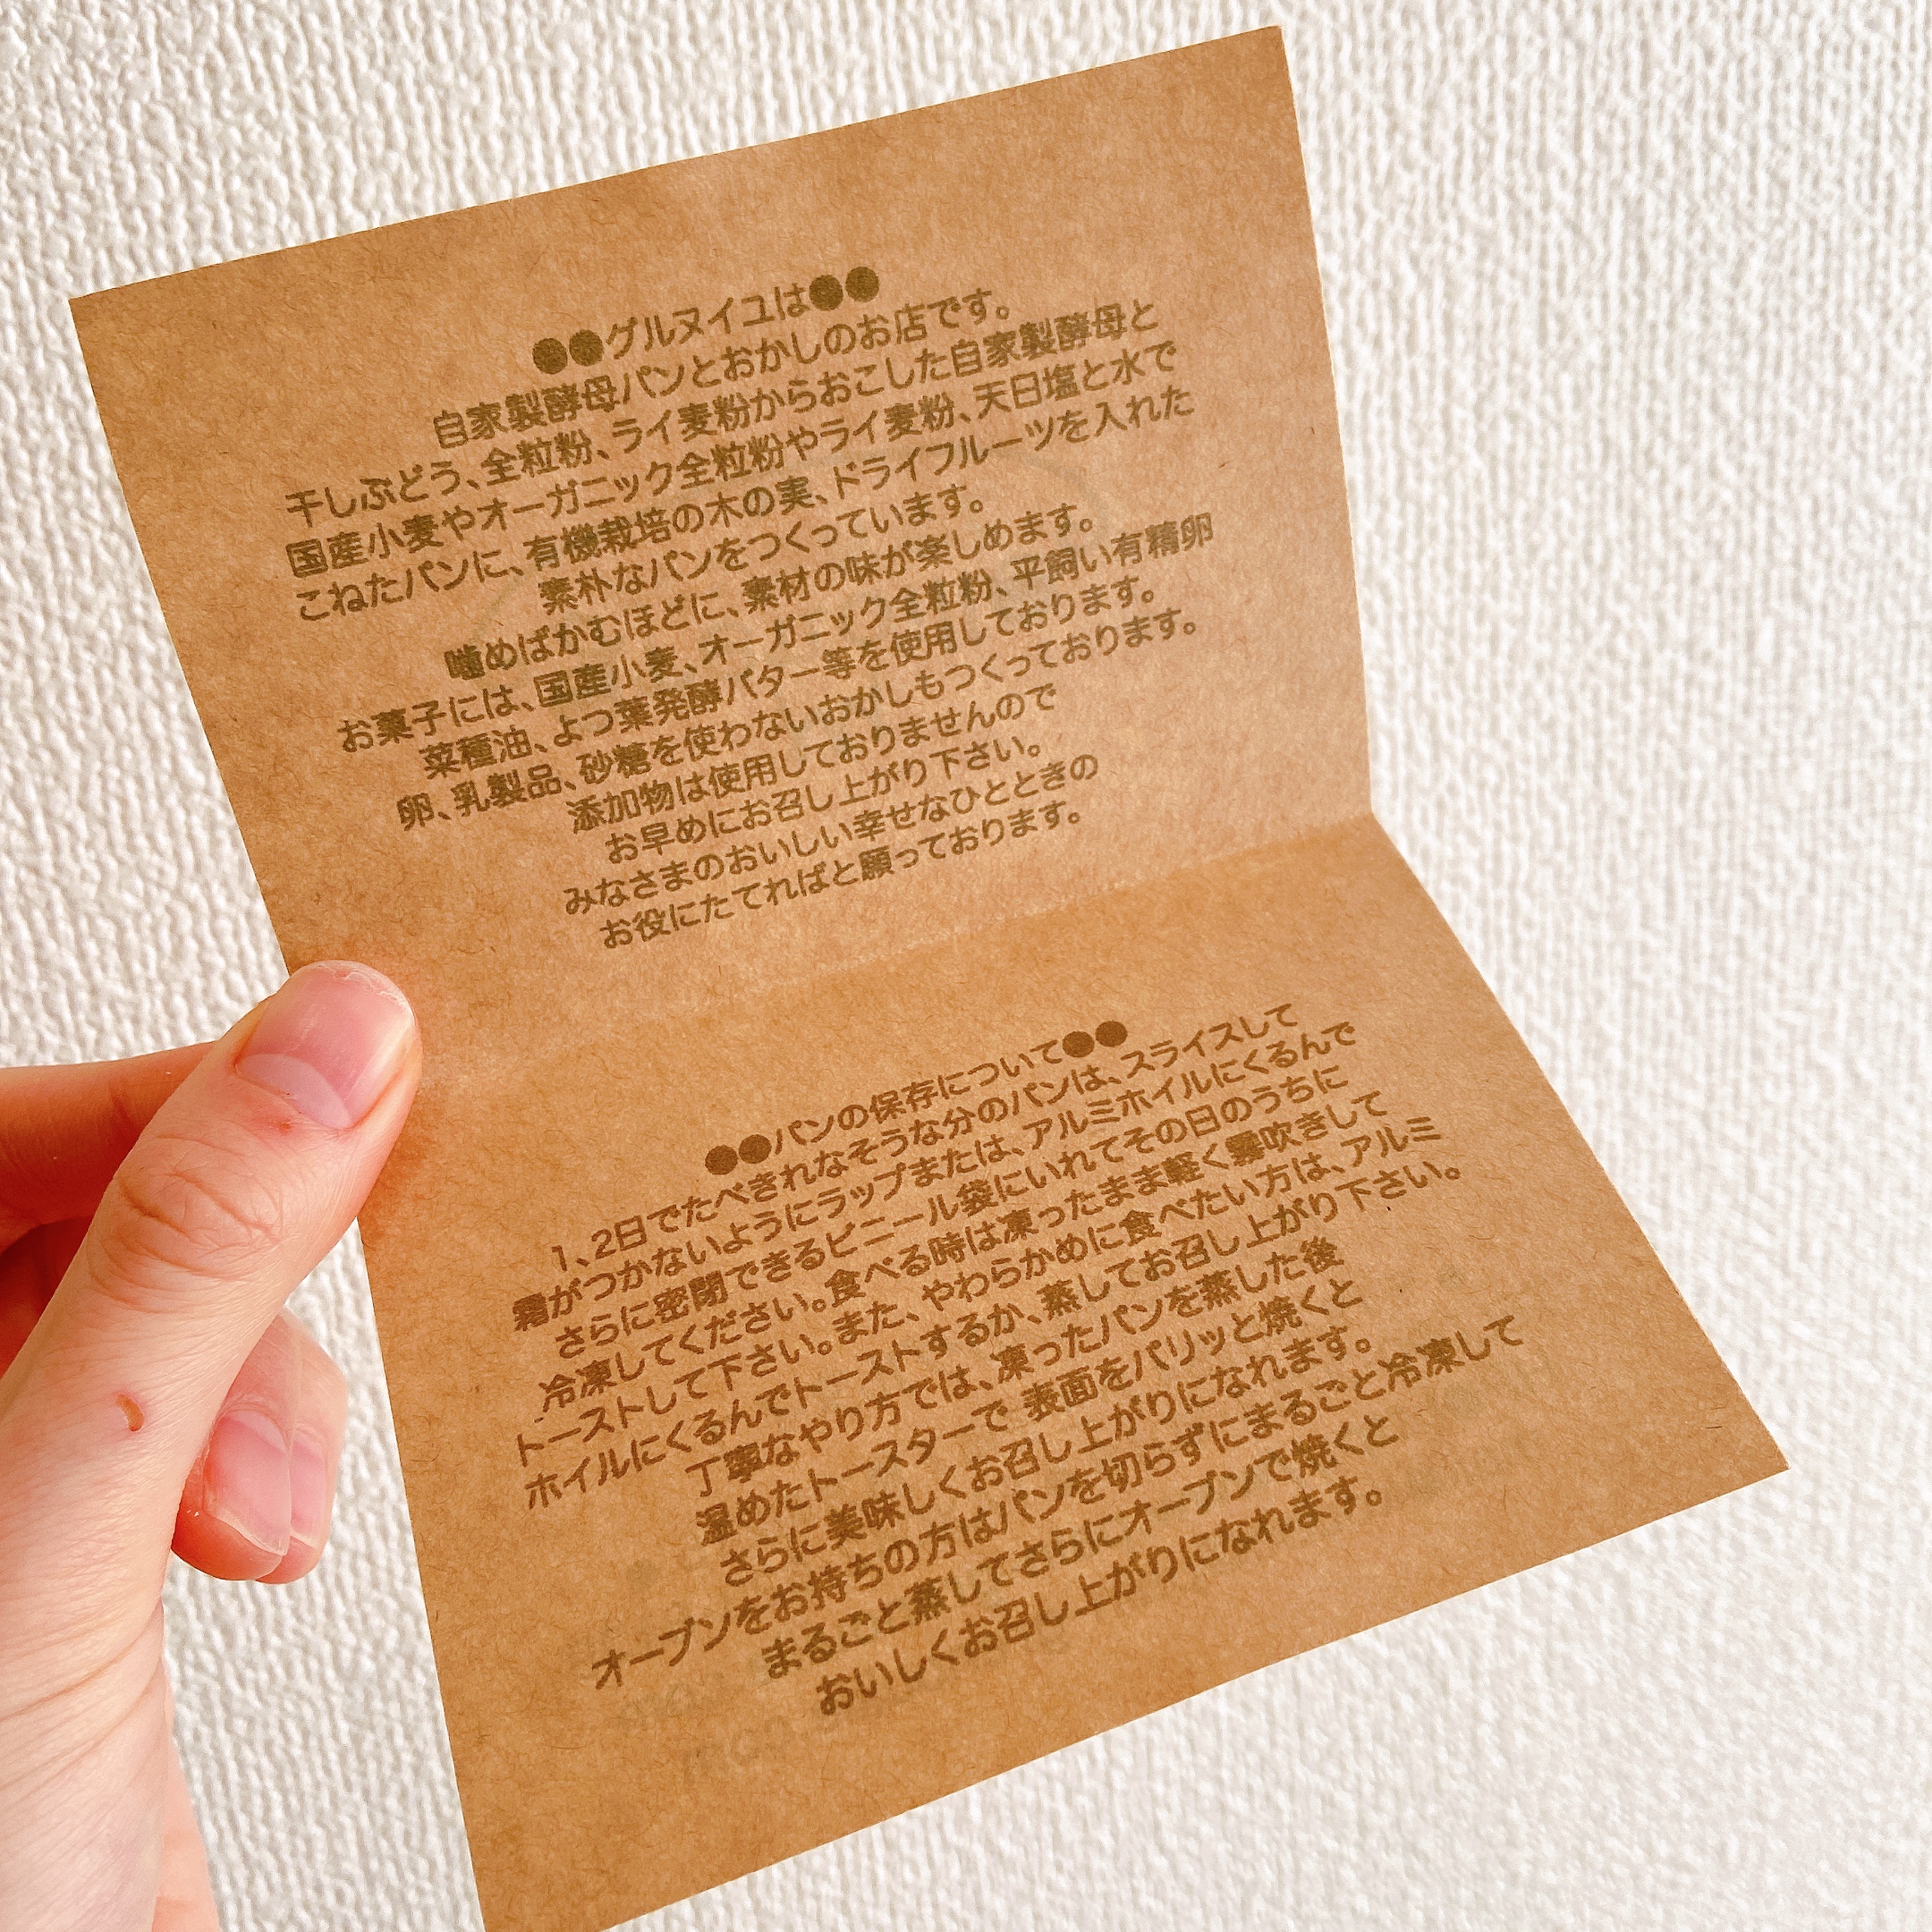 ●●グルヌイユは●●
自家製酵母パンとおかしのお店です。
干しぶどう、全粒粉、ライ麦粉からおこした自家製酵母と
国産小麦やオーガニック全粒粉やライ麦粉、天日塩と水で
こねたパンに、有機栽培の木の実、ドライフルーツを入れた
素朴なパンをつくっています。
噛めばかむほどに、素材の味が楽しめます。
お菓子には、国産小麦、オーガニック全粒粉、平飼い有精卵
菜種油、よつ葉発酵バター等を使用しております。
卵、乳製品、砂糖を使わないおかしもつくっております。
添加物は使用しておりませんので
お早めにお召し上がり下さい。
みなさまのおいしい幸せなひとときの
お役にたてればと願っております。
●●パンの保存について●●
1、2日でたべきれなそうな分のパンは、スライスして
霜がつかないようにラップまたは、アルミホイルにくるんで
さらに密閉できるビニール袋にいれてその日のうちに
冷凍してください。食べる時は凍ったまま軽く霧吹きして
トーストして下さい。また、やわらかめに食べたい方は、アルミ
ホイルにくるんでトーストするか、蒸してお召し上がり下さい。
丁寧なやり方では、凍ったパンを蒸した後
温めたトースターで 表面をパリッと焼くと
さらに美味しくお召し上がりになれます。
オーブンをお持ちの方はパンを切らずにまるごと冷凍して
まるごと蒸してさらにオーブンで焼くと
おいしくお召し上がりになれます。